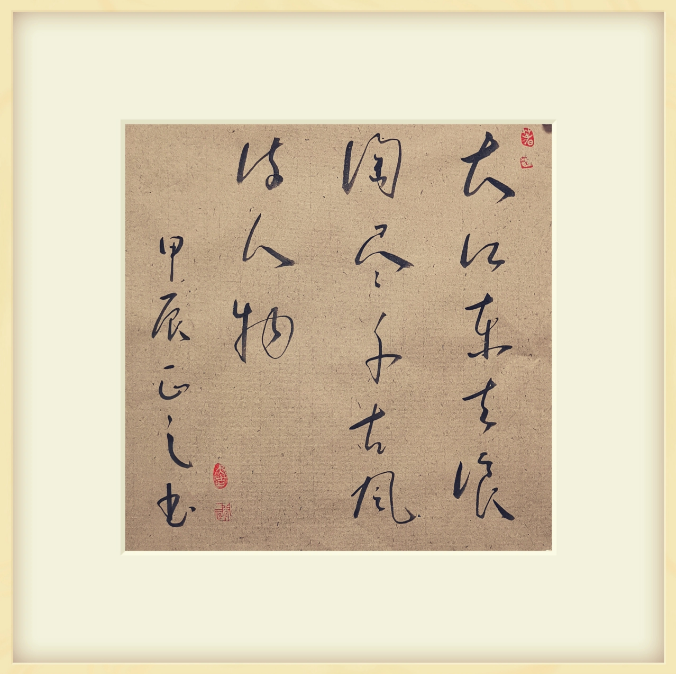 大江东去浪
淘尽千古风
流人物
甲辰正之书